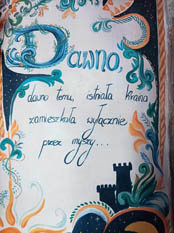 Dawno,
dawno temu, istniała kraina
zamieszkała wyłącznie
przez myszy...